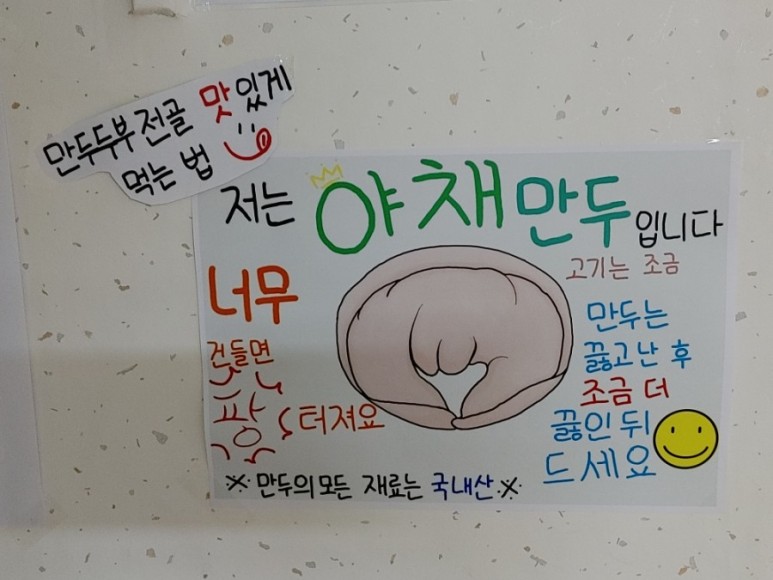 만두두부전골 맛있게
먹는 법
저는 야채만두입니다
고기는 조금
너무
건들면
팡
터져요
만두는
끓고 난 후
조금 더
끓인 뒤
드세요
※ 만두의 모든 재료는 국내산 ※